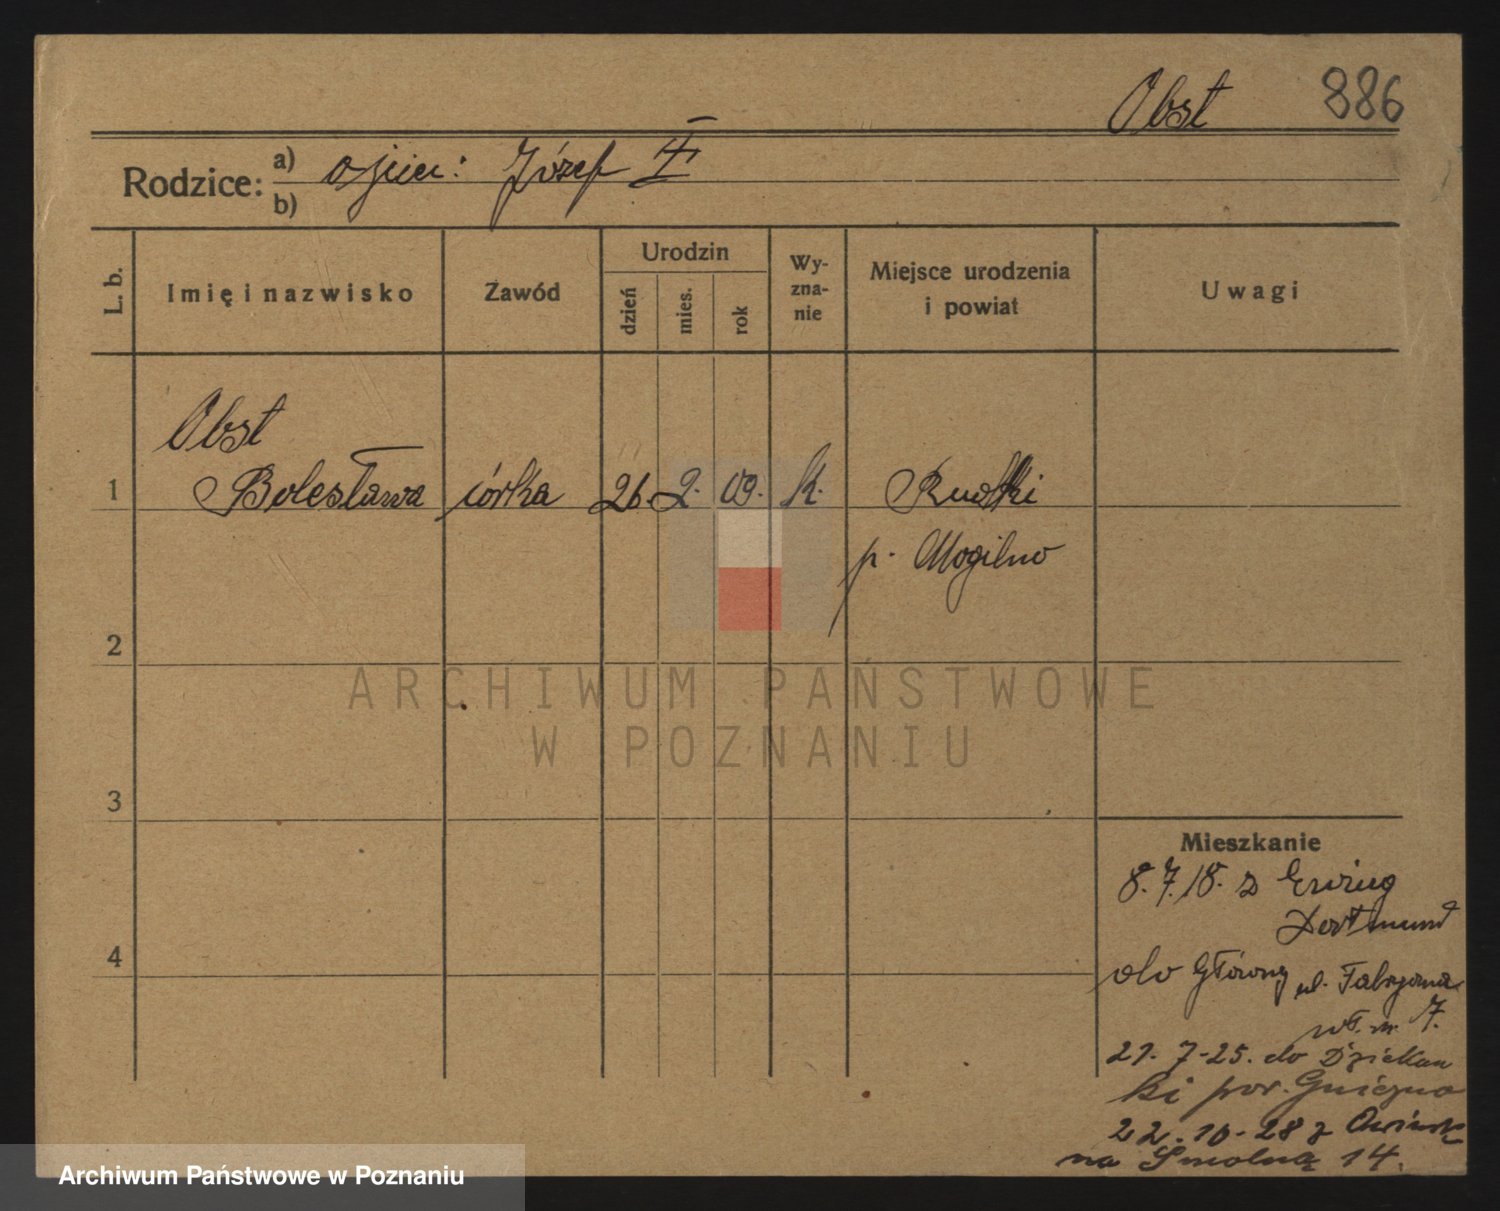 Obst 886
Rodzice: a) ojciec: Józef I
b)
L. b.
Imię i nazwisko
Zawód
Urodzin
dzień
mies.
rok
Wy-
zna-
nie
Miejsce urodzenia
i powiat
Uwagi
Obst
1 Bolesława córka 26. 2. 09. k.
p. Mogilno
2
ARCHIWUM PAŃSTWOWE
W POZNANIU
3
Mieszkanie
8.7.18. z Eving
Dortmund
4
do Główny ul. Fabryczna
nr. 7.
21. 7-25. do Dziekan
ki pow. Gniezno
22.10-28 z Owińsk
na Smolną 14.
Archiwum Państwowe w Poznaniu